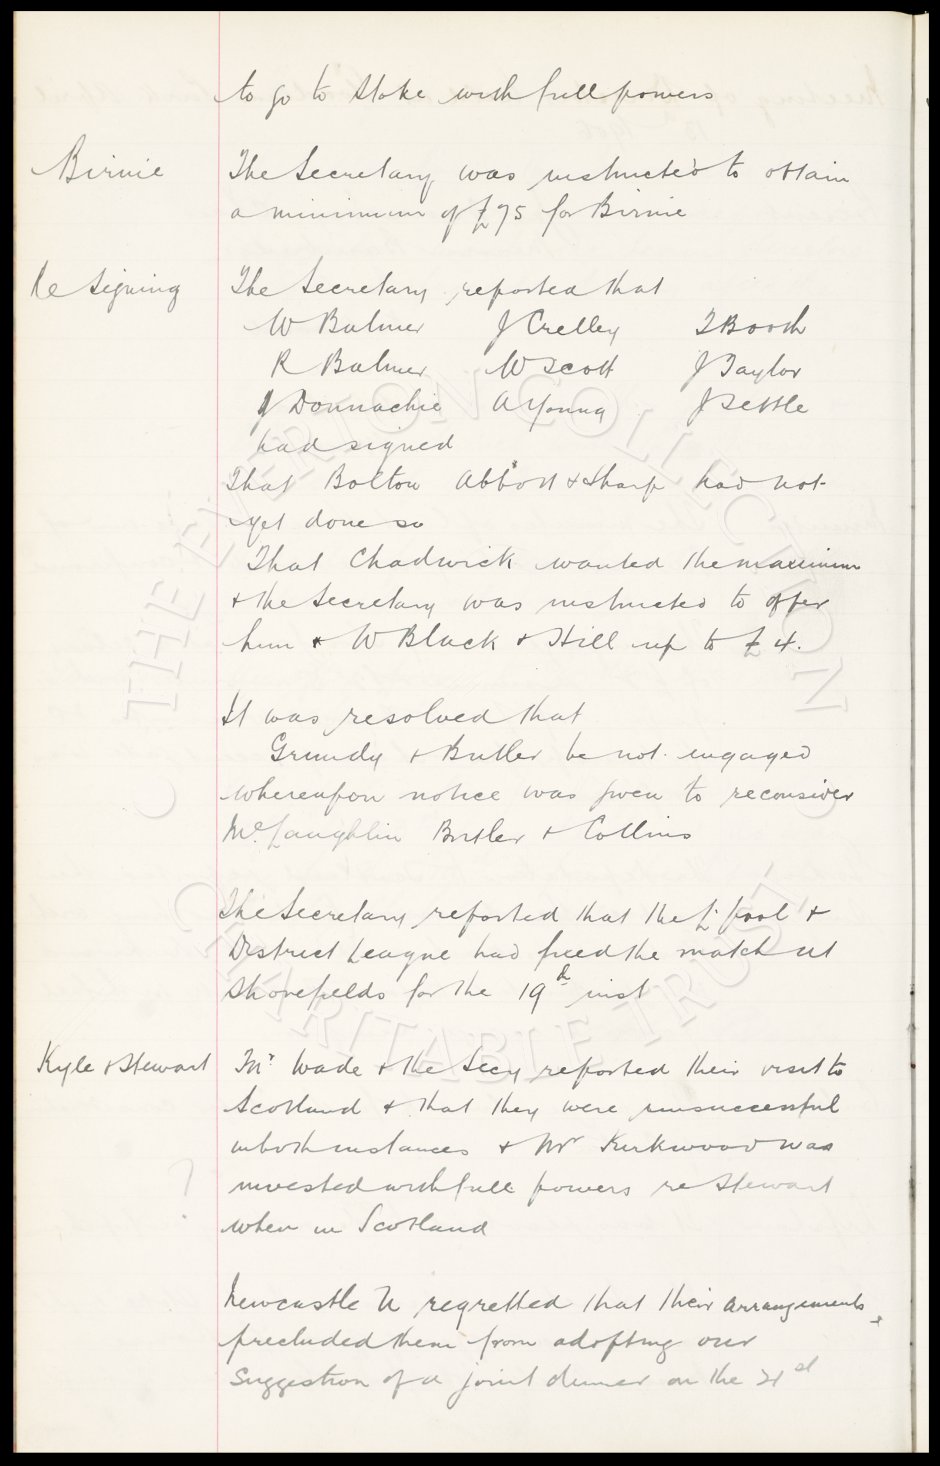 to go to Stoke with full powers
Birnie The Secretary was instructed to obtain
a minimum of £75 for Birnie
Re Signing The Secretary reported that
W Balmer J Crelley T Booth
R Balmer W Scott J Taylor
J Donnachie A Young J Settle
had signed
That Bolton Abbott & Sharp had not
yet done so
That Chadwick wanted the maximum
& the Secretary was instructed to offer
him & W Black & Hill up to £4.
It was resolved that
Grundy & Butler be not engaged
whereupon notice was given to reconsider
McLaughlin Butler & Collins
The Secretary reported that the L'pool &
District League had fixed the match at
Stonefields for the 19th inst
Kyle & Stewart Mr Wade & the Secy reported their visit to
Scotland & that they were unsuccessful
in both instances & Mr Kirkwood was
invested with full powers re Stewart
?
when in Scotland
Newcastle U regretted that their arrangements
precluded them from adopting our
suggestion of a joint dinner on the 21st
© THE EVERTON COLLECTION
CHARITABLE TRUST